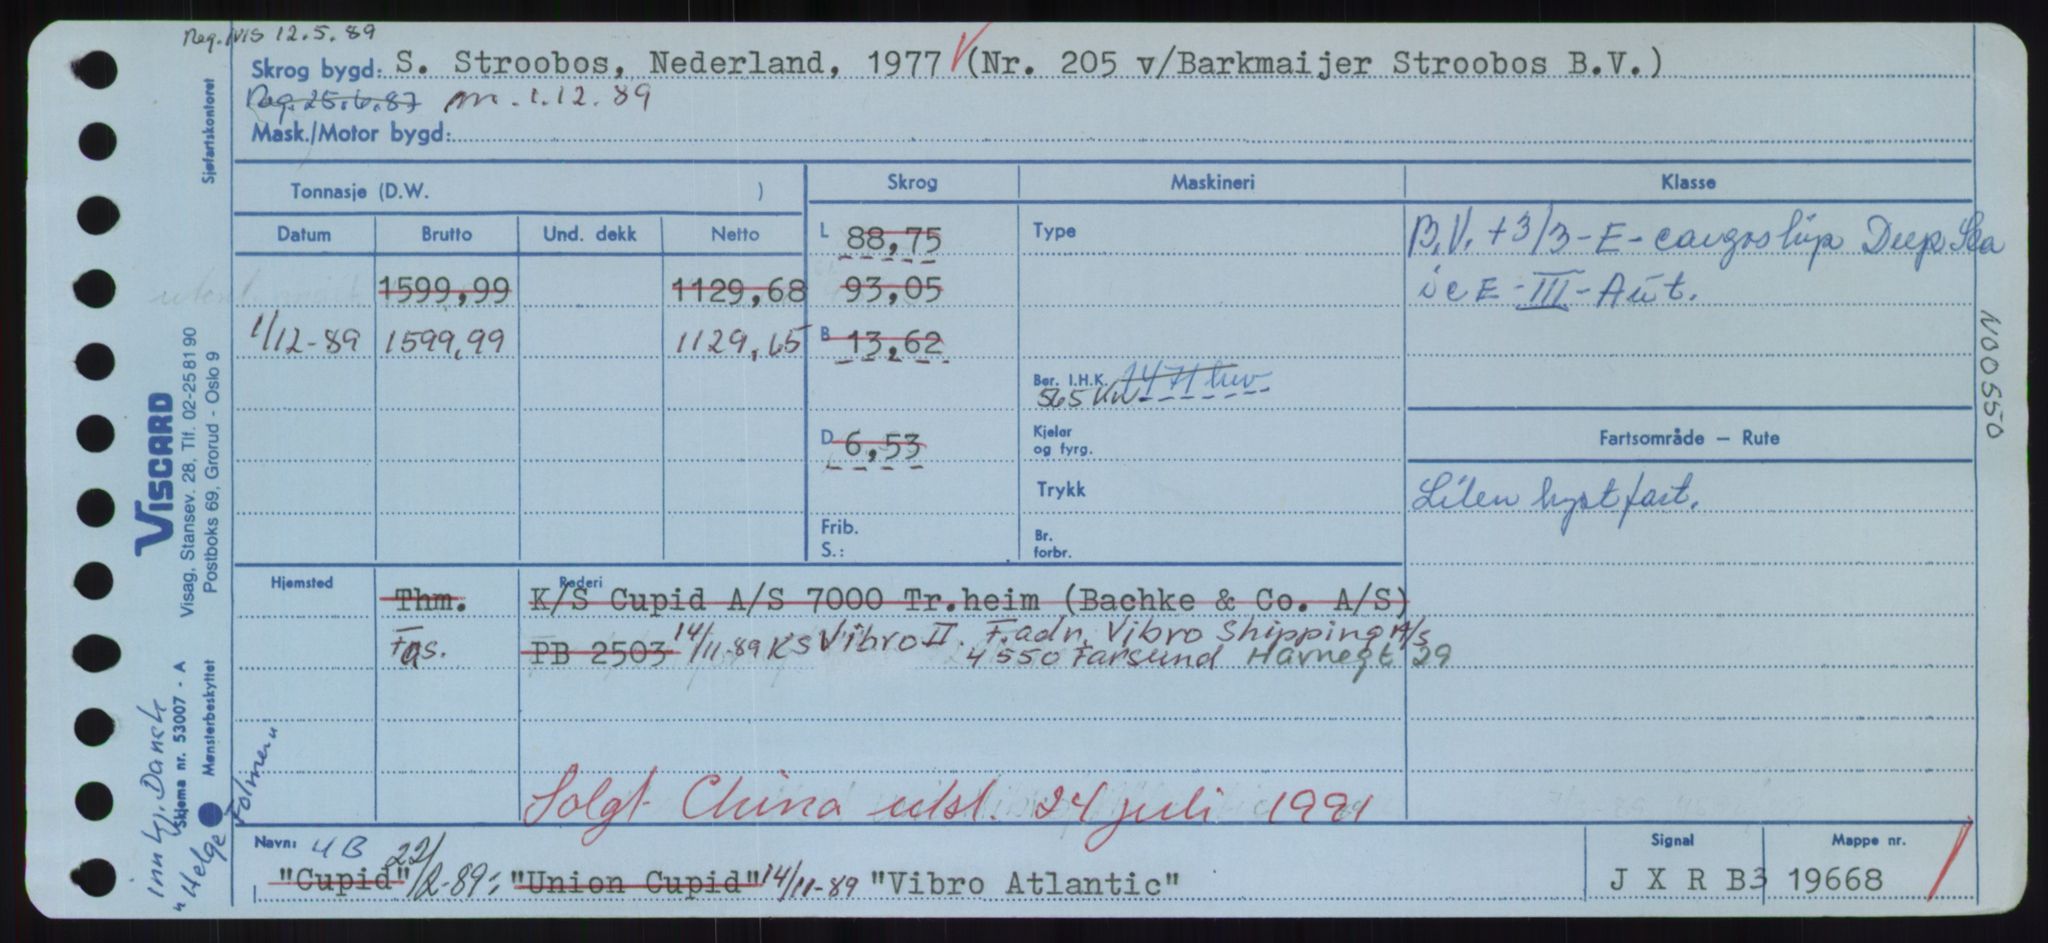 Reg. NIS 12.5.89
Skrog bygd: S. Stroobos, Nederland, 1977 V (Nr. 205 v/Barkmaijer Stroobos B.V.)
Reg. 25.6.87 m. 1.12.89
Mask./Motor bygd:
Tonnasje (D.W. )
Skrog Maskineri Klasse
Datum Brutto Und. dekk Netto
L 88,75 Type B.V. +3/3-E-cargoship Deep Sea
1599,99 1129,68 93,05 ice-III-Aut.
1/12-89 1599,99 1129,65 B 13,62
Ber. I.H.K. 1471 hw
565 KW
D 6,53 Kjeler og fyrg. Fartsområde – Rute
Trykk Liten kyst fart.
Frib. S.: Br. forbr.
Hjemsted Rederi
Thm. K/S Cupid A/S 7000 Tr.heim (Bachke & Co. A/S)
Fas. PB 2503 14/11-89 KS Vibro II. F.adr. Vibro Shipping A/S
4550 Farsund Havnegt 29
Solgt China utsl. 24 juli 1991
Navn: UB Signal Mappe nr.
"Cupid" 22/2-89: "Union Cupid" 14/11-89 "Vibro Atlantic" J X R B3 19668
Sjøfartskontoret
VISCARD
Visag, Stansev. 28, Tlf. 02-25 81 90
Postboks 69, Grorud - Oslo 9
Skjema nr. 53007 - A
Mønsterbeskyttet
inn kj. Dansk
"Helge Folmern
N00550